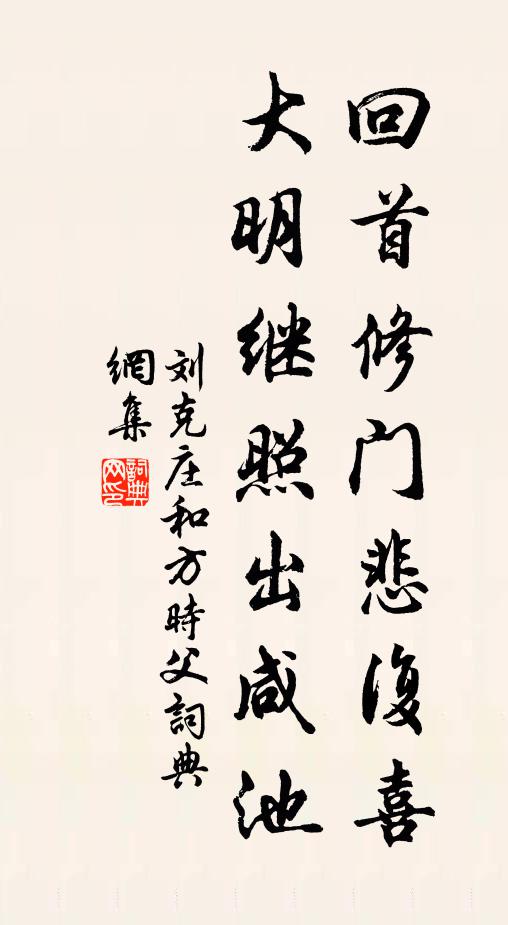 回首修门悲復喜
大明继照出咸池
刘克庄和方時父詞典
網集
詞典
网印